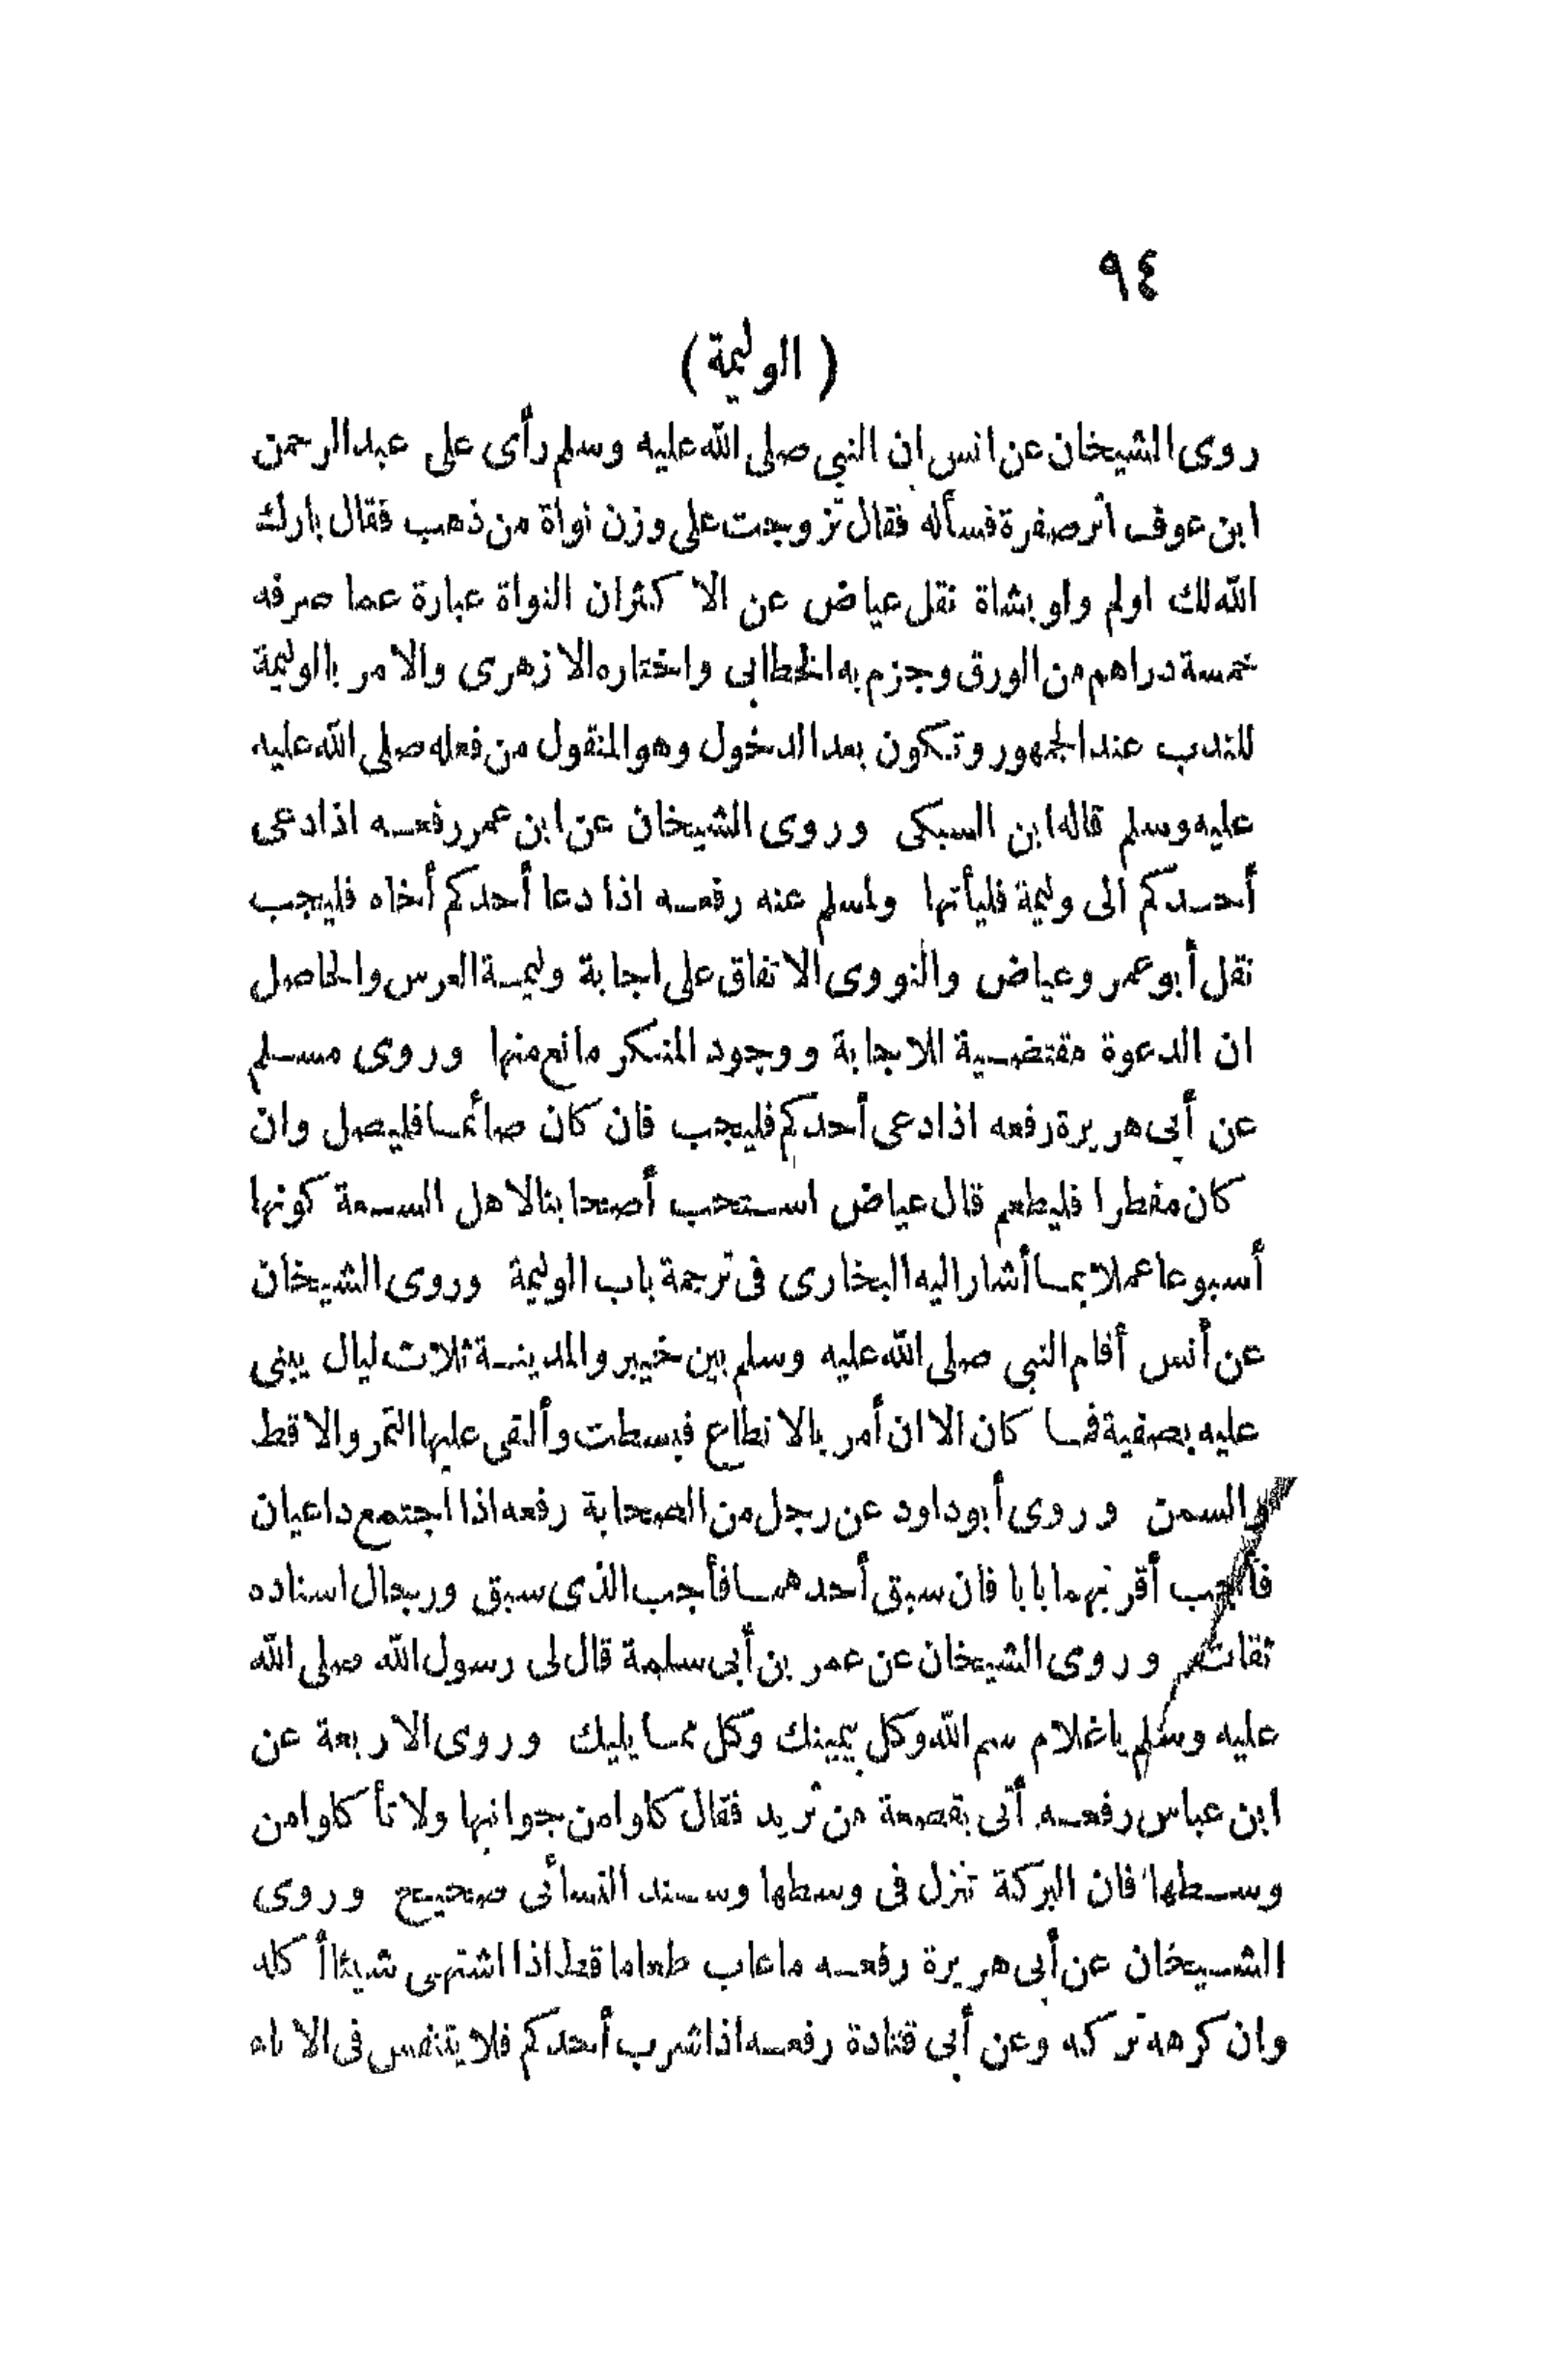 ٩٤
(الوليمة)
روى الشيخان عن انس ان النبى صلى الله عليه وسلم رأى على عبد الرحمن
ابن عوف اثر صفرة فسأله فقال تزوجت على وزن نواة من ذهب فقال بارك
الله لك اولم ولو بشاة نقل عياض عن الاكثران النواة عبارة عما صرفه
خمسة دراهم من الورق وجزم به الخطابى واختاره الازهرى والامر باالوليمة
للندب عند الجمهور وتكون بعد الدخول وهو المنقول من فعله صلى الله عليه
عليه وسلم قاله ابن السبكى وروى الشيخان عن ابن عمر رفعه اذا دعى
أحدكم الى وليمة فليأتها ولمسلم عنه رفعه اذا دعا أحدكم أخاه فليجب
نقل أبو عمر وعياض والنووى الاتفاق على اجابة وليمة العرس والحاصل
ان الدعوة مقتضية للاجابة ووجود المنكر مانع منها وروى مسلم
عن أبى هريرة رفعه اذا دعى أحدكم فليجب فان كان صائما فليصل وان
كان مفطرا فليطعم قال عياض استحب أصحابنا لاهل السعة كونها
أسبوعا عملا بما أشار اليه البخارى فى ترجمة باب الوليمة وروى الشيخان
عن أنس أقام النبى صلى الله عليه وسلم بين خيبر والمدينة ثلاث ليال يبنى
عليه بصفية فما كان الا ان أمر بالانطاع فبسطت وألقى عليها التمر والاقط
والسمن وروى أبو داود عن رجل من الصحابة رفعه اذا اجتمع داعيان
فأجب أقربهما بابا فان سبق أحدهما فأجب الذى سبق ورجال اسناده
ثقات وروى الشيخان عن عمر بن أبى سلمة قال لى رسول الله صلى الله
عليه وسلم ياغلام سم الله وكل بيمينك وكل مما يليك وروى الاربعة عن
ابن عباس رفعه أتى بقصعة من ثريد فقال كلوا من جوانبها ولا تأكلوا من
وسطها فان البركة تنزل فى وسطها وسند النسائى صحيح وروى
الشيخان عن أبى هريرة رفعه ماعاب طعاما قط اذا اشتهى شيئا أكله
وان كرهه تركه وعن أبى قتادة رفعه اذا شرب أحدكم فلا يتنفس فى الاناء